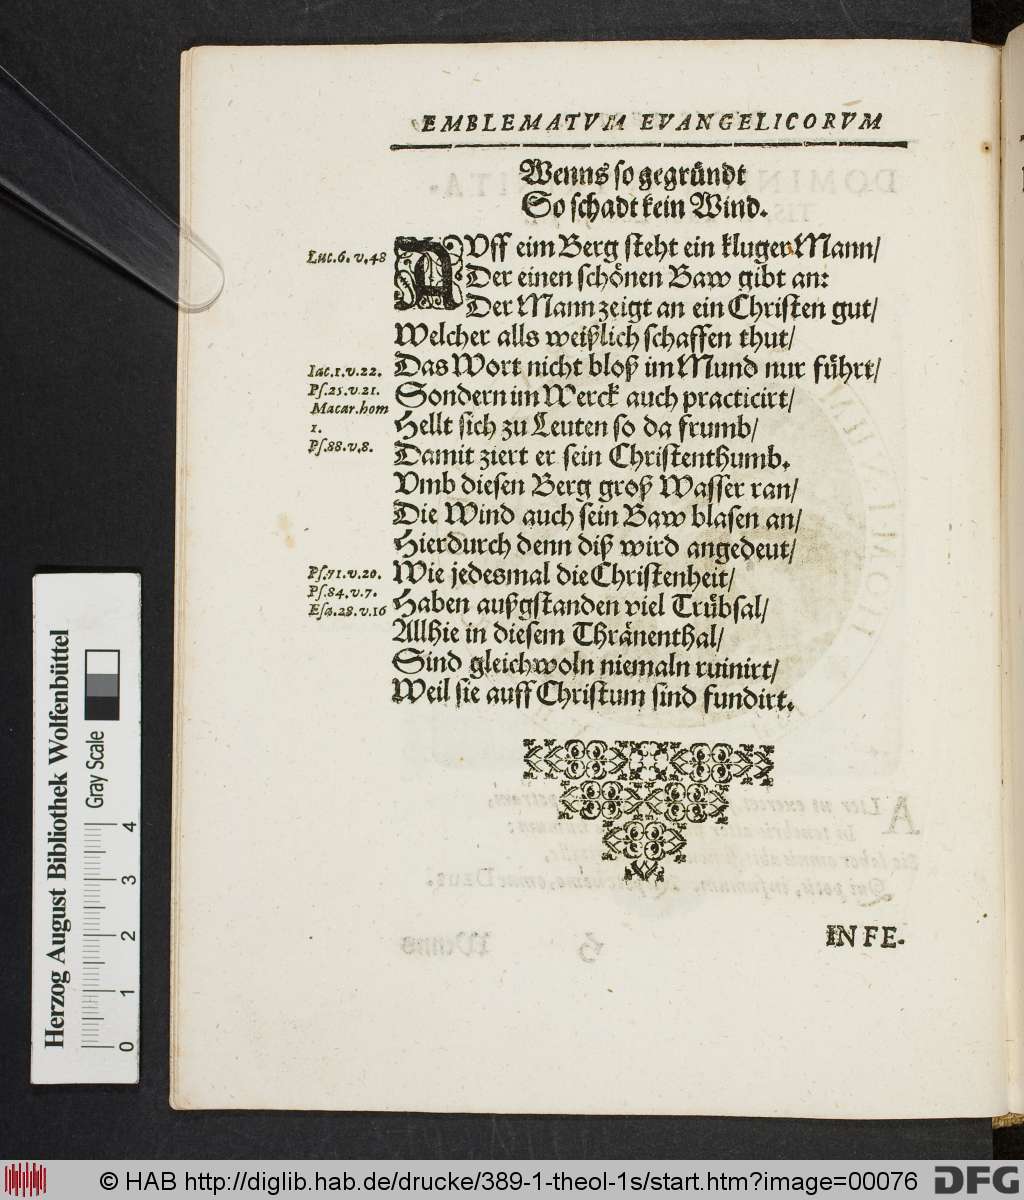 EMBLEMATVM EVANGELICORVM
Wenns so gegründt
So schadt kein Wind.
AVff eim Berg steht ein kluger Mann/
Der einen schönen Baw gibt an:
Der Mann zeigt an ein Christen gut/
Welcher alls weißlich schaffen thut/
Das Wort nicht bloß im Mund nur führt/
Sondern im Werck auch practicirt/
Hellt sich zu Leuten so da frumb/
Damit ziert er sein Christenthumb.
Vmb diesen Berg groß Wasser ran/
Die Wind auch sein Baw blasen an/
Hierdurch denn diß wird angedeut/
Wie jedesmal die Christenheit/
Haben außgstanden viel Trübsal/
Allhie in diesem Thränenthal/
Sind gleichwoln niemaln ruinirt/
Weil sie auff Christum sind fundirt.
Luc.6.v.48
Iac.1.v.22.
Ps.25.v.21.
Macar.hom
1.
Ps.88.v.8.
Ps.71.v.20.
Ps.84.v.7.
Esa.28.v.16
IN FE-
Herzog August Bibliothek Wolfenbüttel
Gray Scale
0 1 2 3 4
© HAB http://diglib.hab.de/drucke/389-1-theol-1s/start.htm?image=00076
DFG